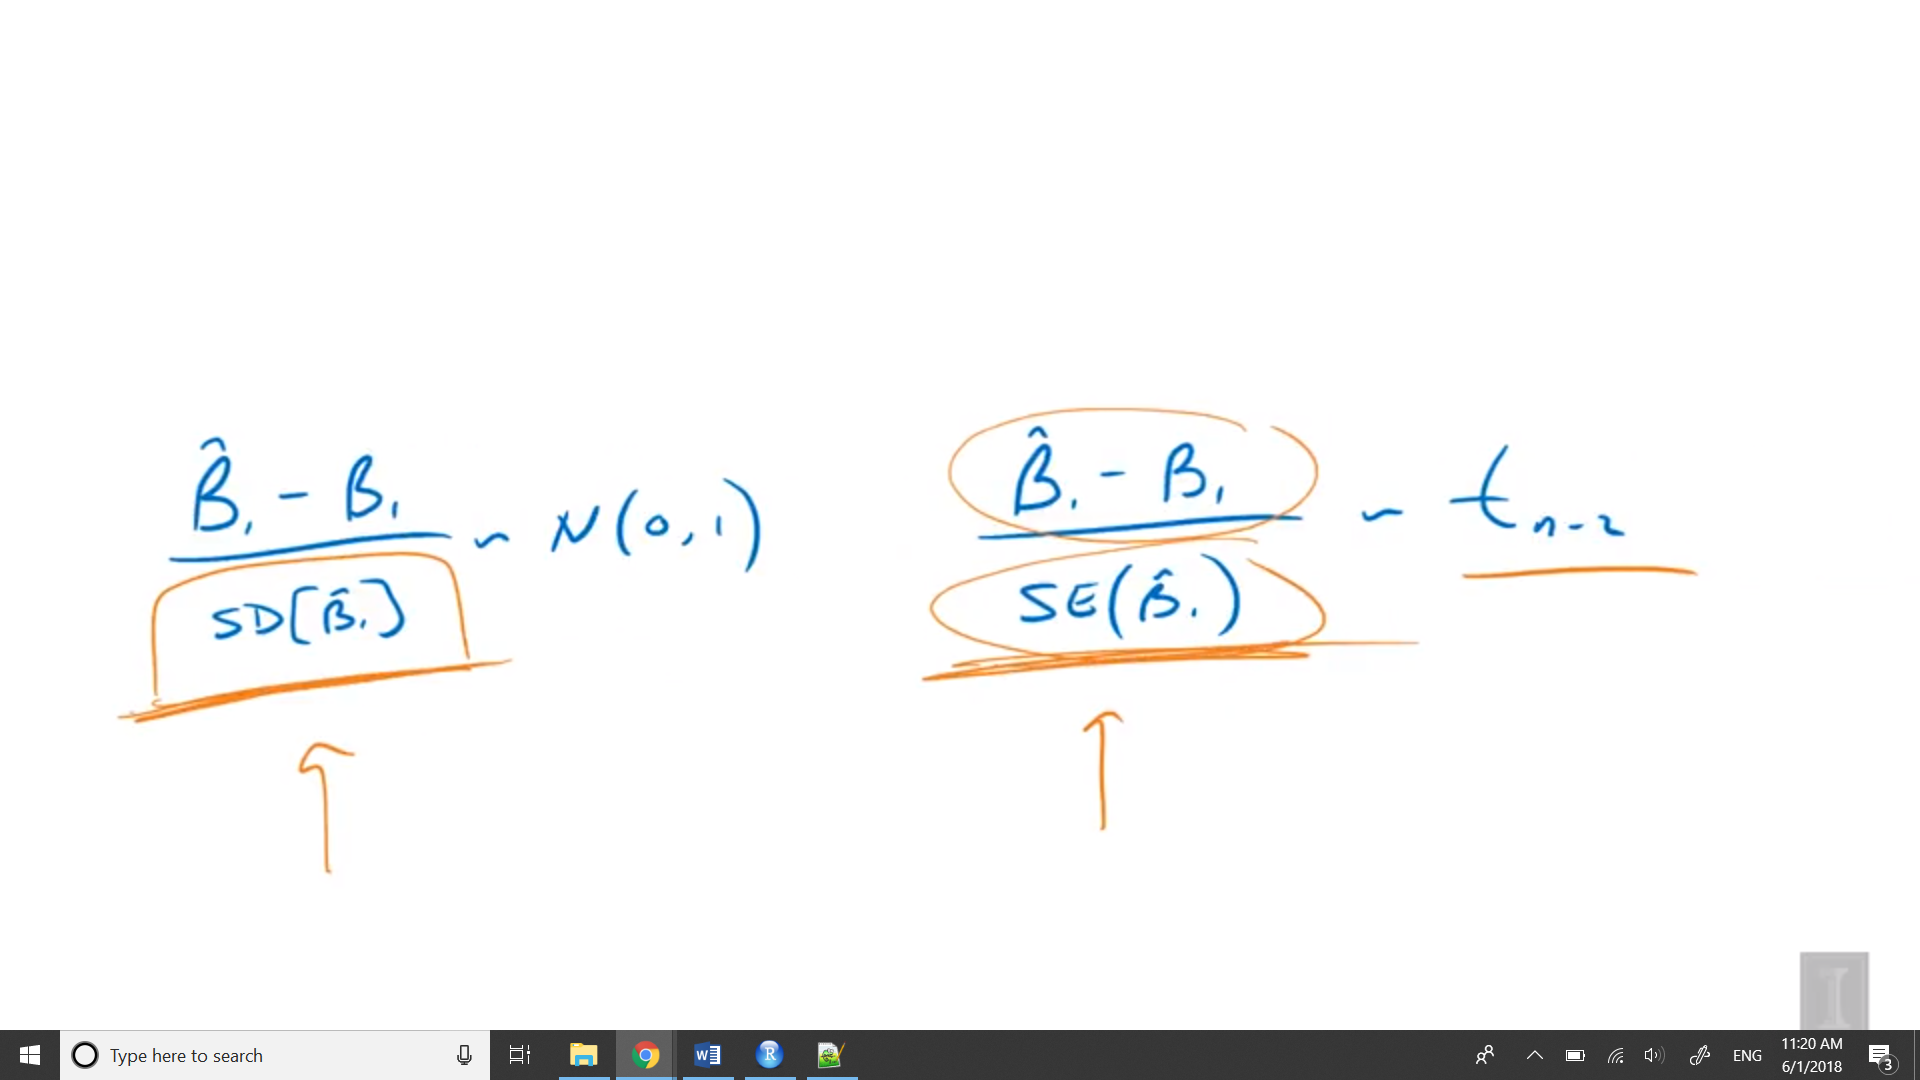 β̂₁ - β₁
SD[β̂₁]
~ N(0,1)
β̂₁ - β₁
SE(β̂₁)
~ tₙ₋₂
I
Type here to search
ENG
11:20 AM
6/1/2018
3